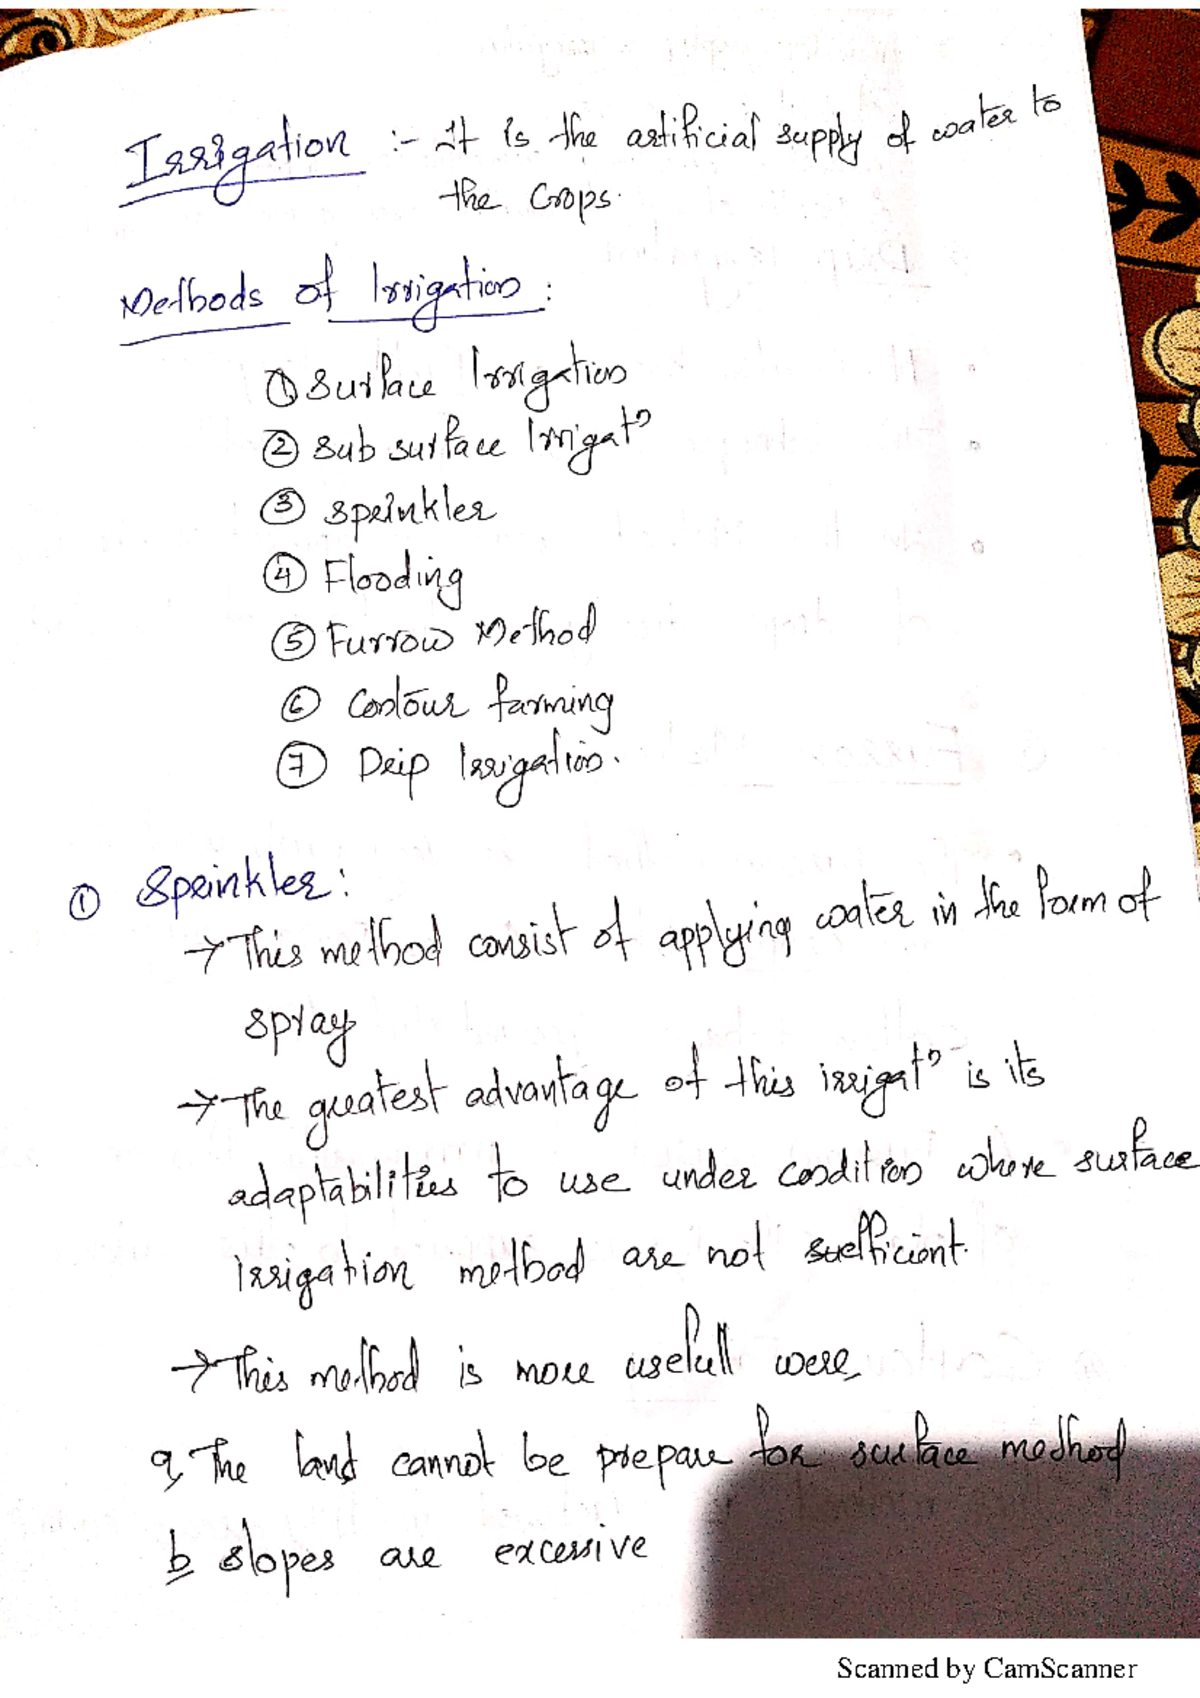 Irrigation :- It is the artificial supply of water to
the crops.
Methods of Irrigation :
① Surface Irrigation
② Sub surface Irrigatn
③ sprinkler
④ Flooding
⑤ Furrow Method
⑥ Contour farming
⑦ Drip Irrigation.
① Sprinkler :
→ This method consist of applying water in the form of
spray
→ The greatest advantage of this irrigatn is its
adaptabilities to use under condition where surface
irrigation method are not suefficient.
→ This method is more usefull were,
a, The land cannot be prepare for surface method
b slopes are excessive
Scanned by CamScanner